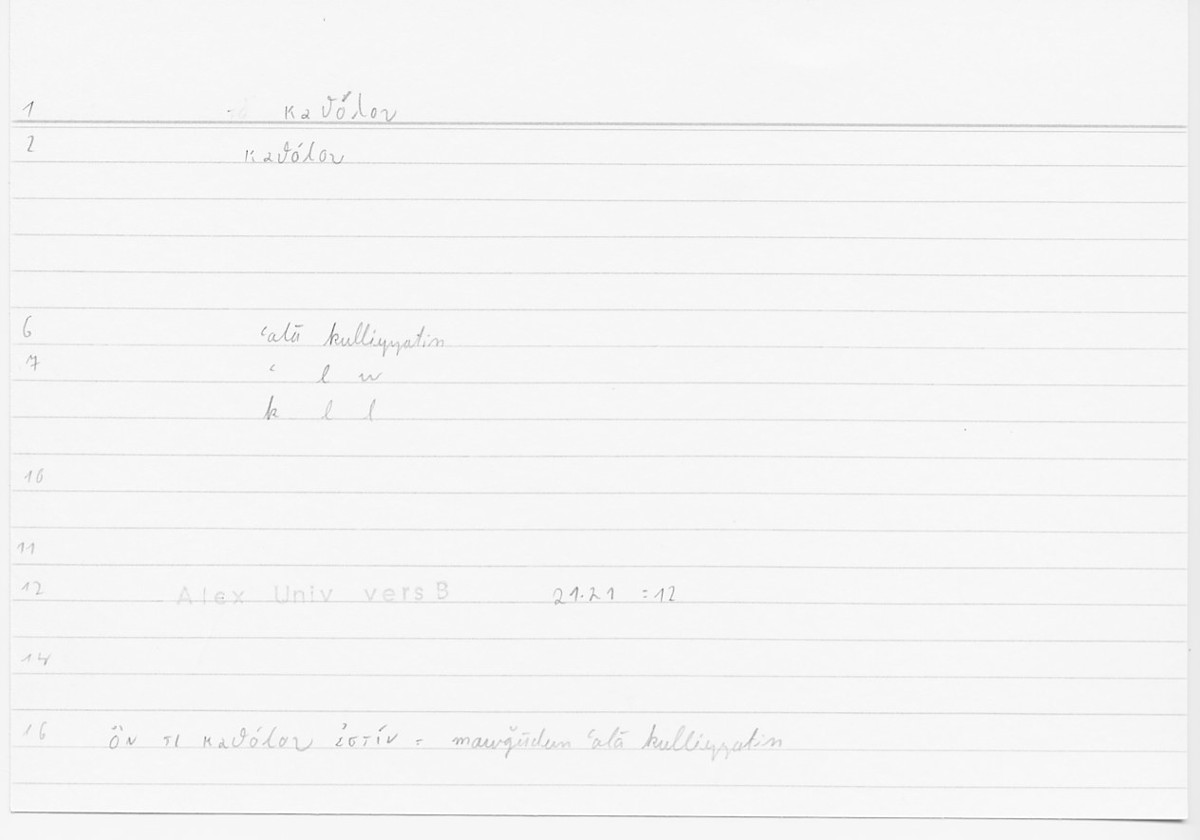 1 τὸ καθόλου
2 καθόλου
6 ʿalā kulliyyatin
7 ʿ l w
k l l
10
11
12 Alex Univ vers B 21.21 :12
14
16 ὄν τι καθόλου ἐστίν = mawǧūdun ʿalā kulliyyatin